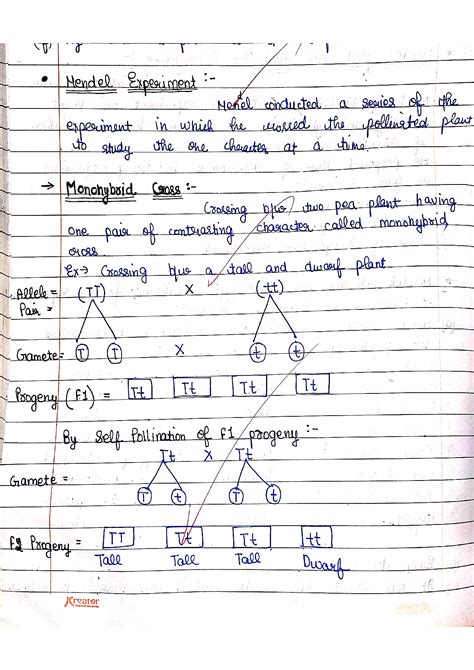 • Mendel Experiment :-
Menel conducted a series of the
experiment in which he crossed the pollinated plant
to study the one character at a time.
→ Monohybrid Cross :-
Crossing b/w two pea plant having
one pair of contrasting character called monohybrid
cross
Ex → Crossing b/w a tall and dwarf plant.
Allele = (TT) X (tt)
Pair =
Gamete = T T X t t
Progeny (F1) = Tt Tt Tt Tt
By Self Pollination of F1 progeny :-
Tt X Tt
Gamete = T t T t
F2 Progeny = TT Tt Tt tt
Tall Tall Tall Dwarf
Kreator